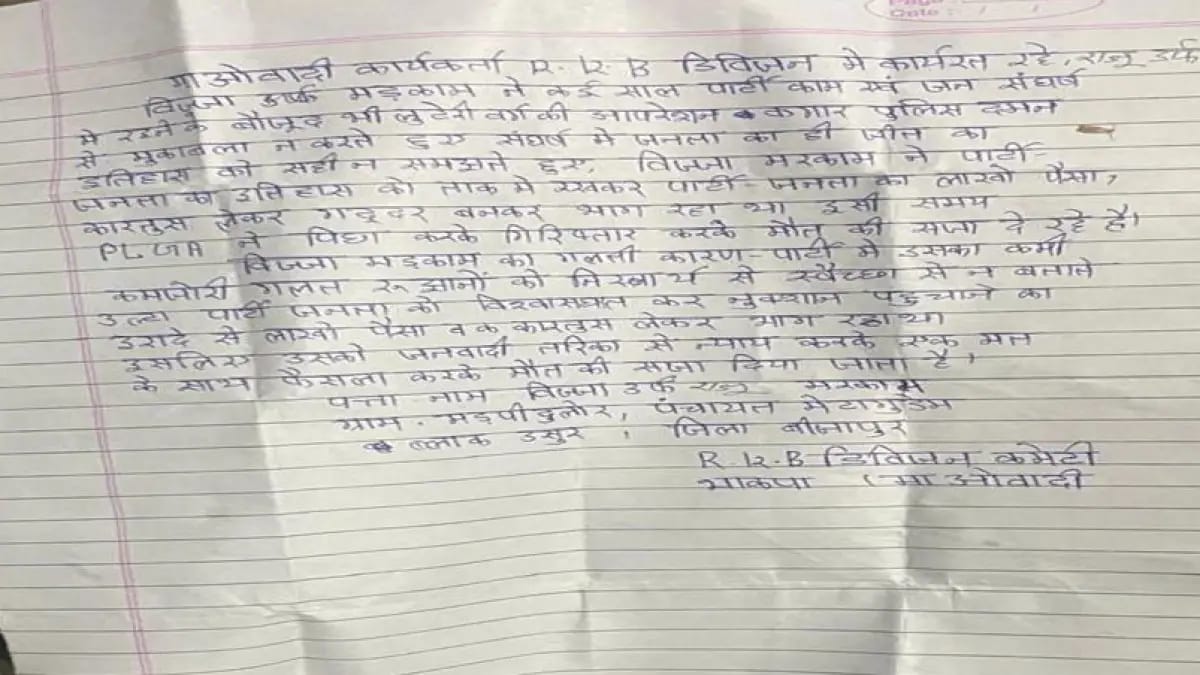 Date : / /
माओवादी कार्यकर्ता R.K.B डिविजन मे कार्यरत रहे, राजू उर्फ
विज्जा उर्फ मड़काम ने कई साल पार्टी काम एवं जन संघर्ष
मे रहने के बौजूद भी लुटेरी वर्ग की आपरेशन कगार पुलिस दमन
से मुकाबला न करते हुए संघर्ष मे जनता का ही जीत का
इतिहास को सही न समझते हुए, विज्जा मरकाम ने पार्टी-
जनता का इतिहास को ताक मे रखकर पार्टी-जनता का लाखो पैसा,
कारतुस लेकर गद्दर बनकर भाग रहा था इसी समय
PLGA ने पिछा करके गिरिफ्तार करके मौत की सजा दे रहे है।
विज्जा मड़काम का गलती कारण-पार्टी मे उसका कमी
कमाजोरी गलत रूझानों को निस्वार्थ से स्वैच्छा से न बताते
उल्टा पार्टी जनता को विश्वासघात कर नुकशान पहुचाने का
इरादे से लाखो पैसा व कारतुस लेकर भाग रहा था
इसलिए उसको जनवादी तरिका से न्याय करके एक मत
के साथ फैसला करके मौत की सजा दिया जाता है,
पत्ता नाम विज्जा उर्फ राजू मरकाम
ग्राम. मड़पीदुलोर, पंचायत मेटागुडम
ब्लाक उसुर, जिला बीजापुर
R.K.B डिविजन कमेटी
भाकपा (माओवादी